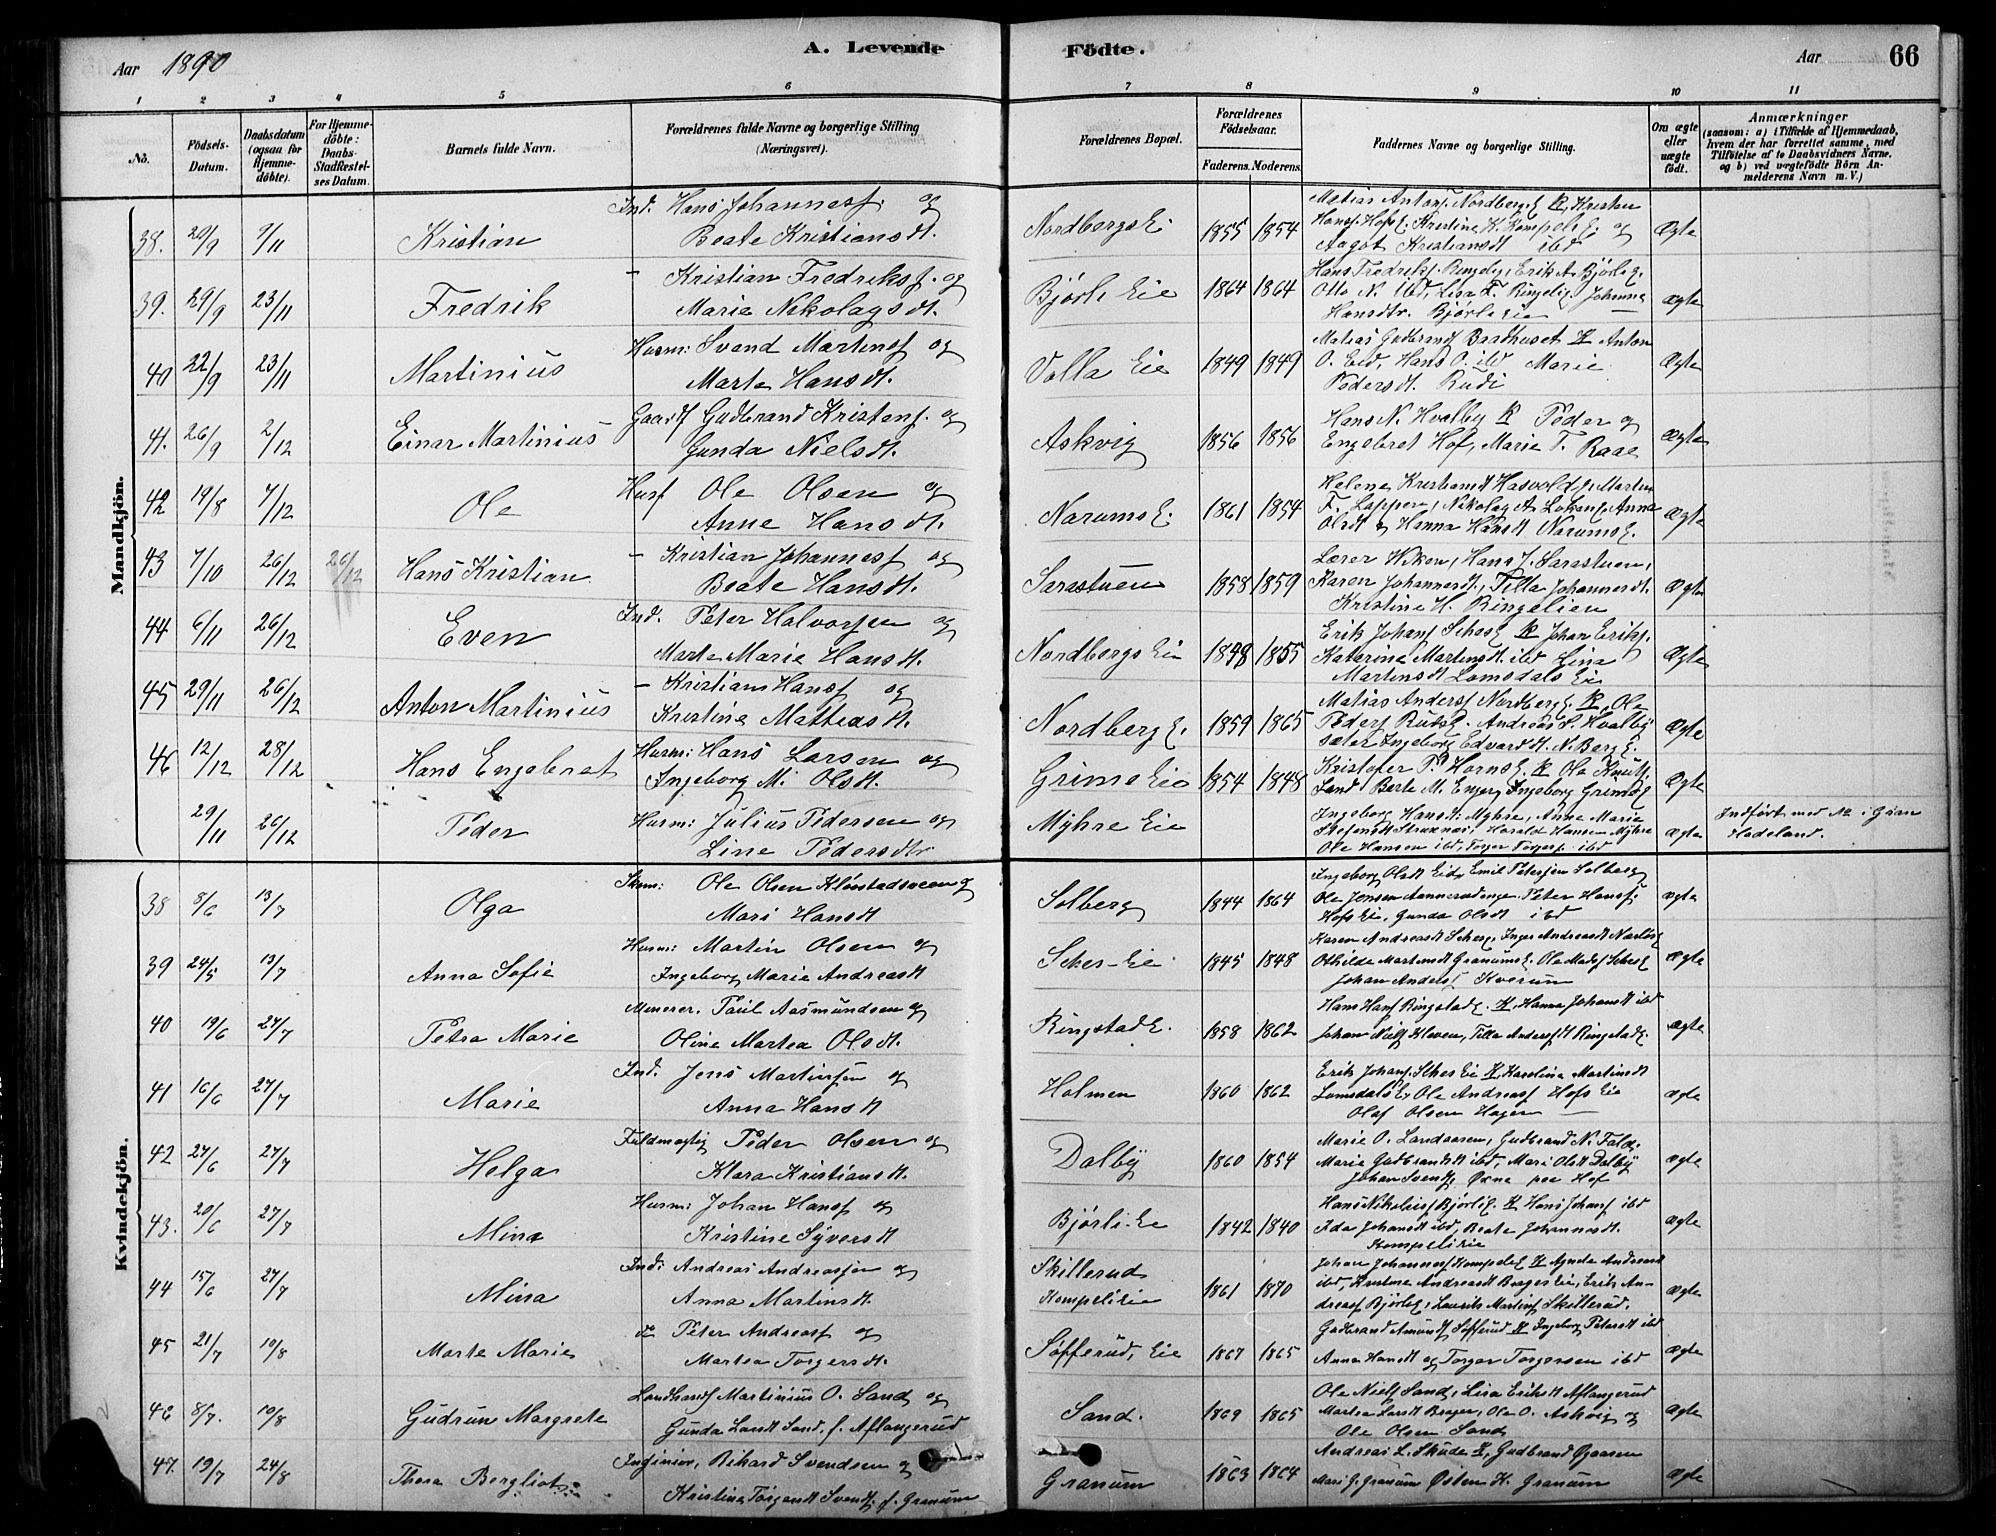 Aar 1890
A. Levende Födte.
Aar
66
1 2 3 4 5 6 7 8 9 10 11
No.
Födsels-Datum.
Daabsdatum (ogsaa for Hjemme-döbte).
For Hjemme-döbte: Daabs-Stadfæstel-ses Datum.
Barnets fulde Navn.
Forældrenes fulde Navne og borgerlige Stilling (Næringsvei).
Forældrenes Bopæl.
Forældrenes Födselsaar.
Faderens. Moderens.
Faddernes Navne og borgerlige Stilling.
Om ægte eller uægte födt.
Anmærkninger
(saasom: a) i Tilfælde af Hjemmedaab, hvem der har forrettet samme, med Tilföielse af to Daabsvidners Navne, og b) ved uægtefödte Börn An-melderens Navn m. V.)
Mandkjön.
38. 20/9 9/11 Kristian Ind. Hans Johannesf. og Beate Kristiansdt. Nordbergs Ei 1855 1854 Matias Antonf. Nordbergs E. K, Kristen Hansf. Hofs E. Kristine K. Kompeli E. og Aagot Kristiansdt ibd Ægte
39. 29/9 23/11 Fredrik – Kristian Fredriksf. og Marie Nikolagsdt. Bjørli Eie 1864 1864 Hans Fredriksf. Ringelig, Erik A. Bjørlig. Otto N. ibd, Lisa F. Ringelig. Johanna Hansdtr. Bjørli Eie ægte
40 22/9 23/11 Martinius Husm: Svend Martinsf og Marte Hansdt. Volla Eie 1849 1849 Matias Gudbrandsf Baadhuset K Anton O. Eid, Hans O. ibd Marie Pedersdt. Rudi Ægte
41. 26/9 2/12 Einar Martinius Gaardf Gudbrand Kristenf. og Gunda Nielsdt. Askvig 1856 1856 Hans N. Hvalby K Peder og Engebret Hof, Marie T. Raae Ægte
42 19/8 7/12 Ole Husf Ole Olsen og Anne Hansdt. Narums E. 1861 1854 Helene Hasvold Marten F. Lappen, Nikolag A. Anna Olsdt og Hanna Hansdt Narums E. Ægte
43 7/10 26/12 26/12 Hans Kristian – Kristian Johannesf og Beate Hansdt. Sarastuen 1858 1859 Lærer Wiken, Hans J. Sarastuen, Karen Johannesdt., Tilla Johannesdt. Kristine H. Ringelien Ægte
44 6/11 26/12 Even Ind. Peter Halvorsen og Marte Marie Hansdt. Nordbergs Eie 1848 1855 Erik Johansf Schesg K Johan Eriksf. Katerine Martinsdt ibd Lina Martinsdt Lomsdals Eie Ægte
45 29/11 26/12 Anton Martinius – Kristian Hansf og Kristine Mattiasdt. Nordberg E. 1859 1865 Matias Andersf Nordberg E. K, Ole Pedersf Ruds E. Andreas S. Hvalbysæter Ingeborg Edvardsdt. N. Berg E. Ægte
46 12/12 28/12 Hans Engebret Husm: Hans Larsen og Ingeborg M. Olsdt. Grime Eie 1854 1848 Kristofer P. Horns E. K Ole Knutsf. Sand Berte M. Enger, Ingeborg Grims E Ægte
29/11 26/12 Peder Husm: Julius Pedersen og Line Pedersdtr Myhre Eie Ingeborg Hansdt. Myhre, Anne Marie Stefensdt Struxnæs, Harald Hansen Myhre Ole Hansen ibd, Torger Torgersf. ibd ægte Indført med No i Gran Hadeland.
Kvindekjön.
38 8/6 13/7 Olga Skom: Ole Olsen Kløvstadsveen og Mari Hansdt Solberg 1844 1864 Ingeborg Olsdt Eid, Emil Petersen Solberg Ole Jensen Peter Hansf: Hofs Ei, Gunda Olsdt ibd ægte
39 24/5 13/7 Anna Sofie Husm: Martin Olsen og Ingeborg Marie Andreasdt Sches-Ei 1845 1848 Karen Andreasdt Schesg, Inger Andreasdt Othilde Martinsdt Granums E. Ole Madsf Sches E Johan Andersf Kverum Ægte
40 19/6 27/7 Petra Marie Minerer. Paul Aasmundsen og Oline Martea Olsdt. Ringstad E. 1858 1862 Hans Hansf Ringstad E. K, Hanna Johansdt ibd Johan Nielsf Kleven, Tilla Andersdt Ringstad E. ægte
41 16/6 27/7 Marie Ind. Jens Martinsen og Anna Hansdt Holmen 1860 1862 Erik Johansf. Sches Eie K, Karolina Martinsdt Lomsdals E, Ole Andreasf Hofs Eie Olaf Olsen Hagen ægte
42 27/6 27/7 Helga Fuldmægtig Peder Olsen og Klara Kristiansdt. Dalby 1860 1854 Marie O. Landaasen, Gudbrand N. Fald, Marie Gudbrandsdt ibd, Mari Olsdt Dalby Johan Svendsf. Øxna paa Hof ægte
43. 20/6 27/7 Mina Husm: Johan Hansf og Kristine Syversdt Bjørli-Eie 1842 1840 Hans Nikolaisf Bjørli E. K Hans Johansf ibd Ada Johansdt ibd, Beate Johannesdt. Kompeli Eie Ægte
44 15/6 27/7 Mina Ind: Andreas Andreassen og Anna Martinsdt. Skillerud Kompeli Eie 1861 1870 Johan Johannesf Kompeli E K Agnete Andreasdt ibd, Kristine Andreasdt Berges Eie, Erik Andreasf Bjørli E, Laurits Martinsf Skillerud. Ægte
45 21/7 10/8 Marte Marie do Peter Andreasf og Martea Torgersdt. Søfferud, Eie 1867 1865 Gudbrand Amundsf Søfferud K Ingeborg Petersdt ibd Anna Hansdt og Torger Torgersen ibd Ægte
46 8/7. 10/8 Gudrun Margrete Landhandf Martinius O. Sand og Gunda Sand, f. Aflangerud Sand. 1869 1865 Ole Nielsf Sand, Lisa Eriksdt Aflangerud Martea Larsdt Brager, Ole O. Askvig og Ole Olsen Sand Ægte
47. 19/7 24/8 Thora Bergliot Ingeniør, Rikard Svendsen og Kristine Torgersdt Svends. f. Granum Granum 1863 1864 Andreas L. Skute K, Gudbrand Øgaarden Mari G. Granum Østen H. Granum Ægte